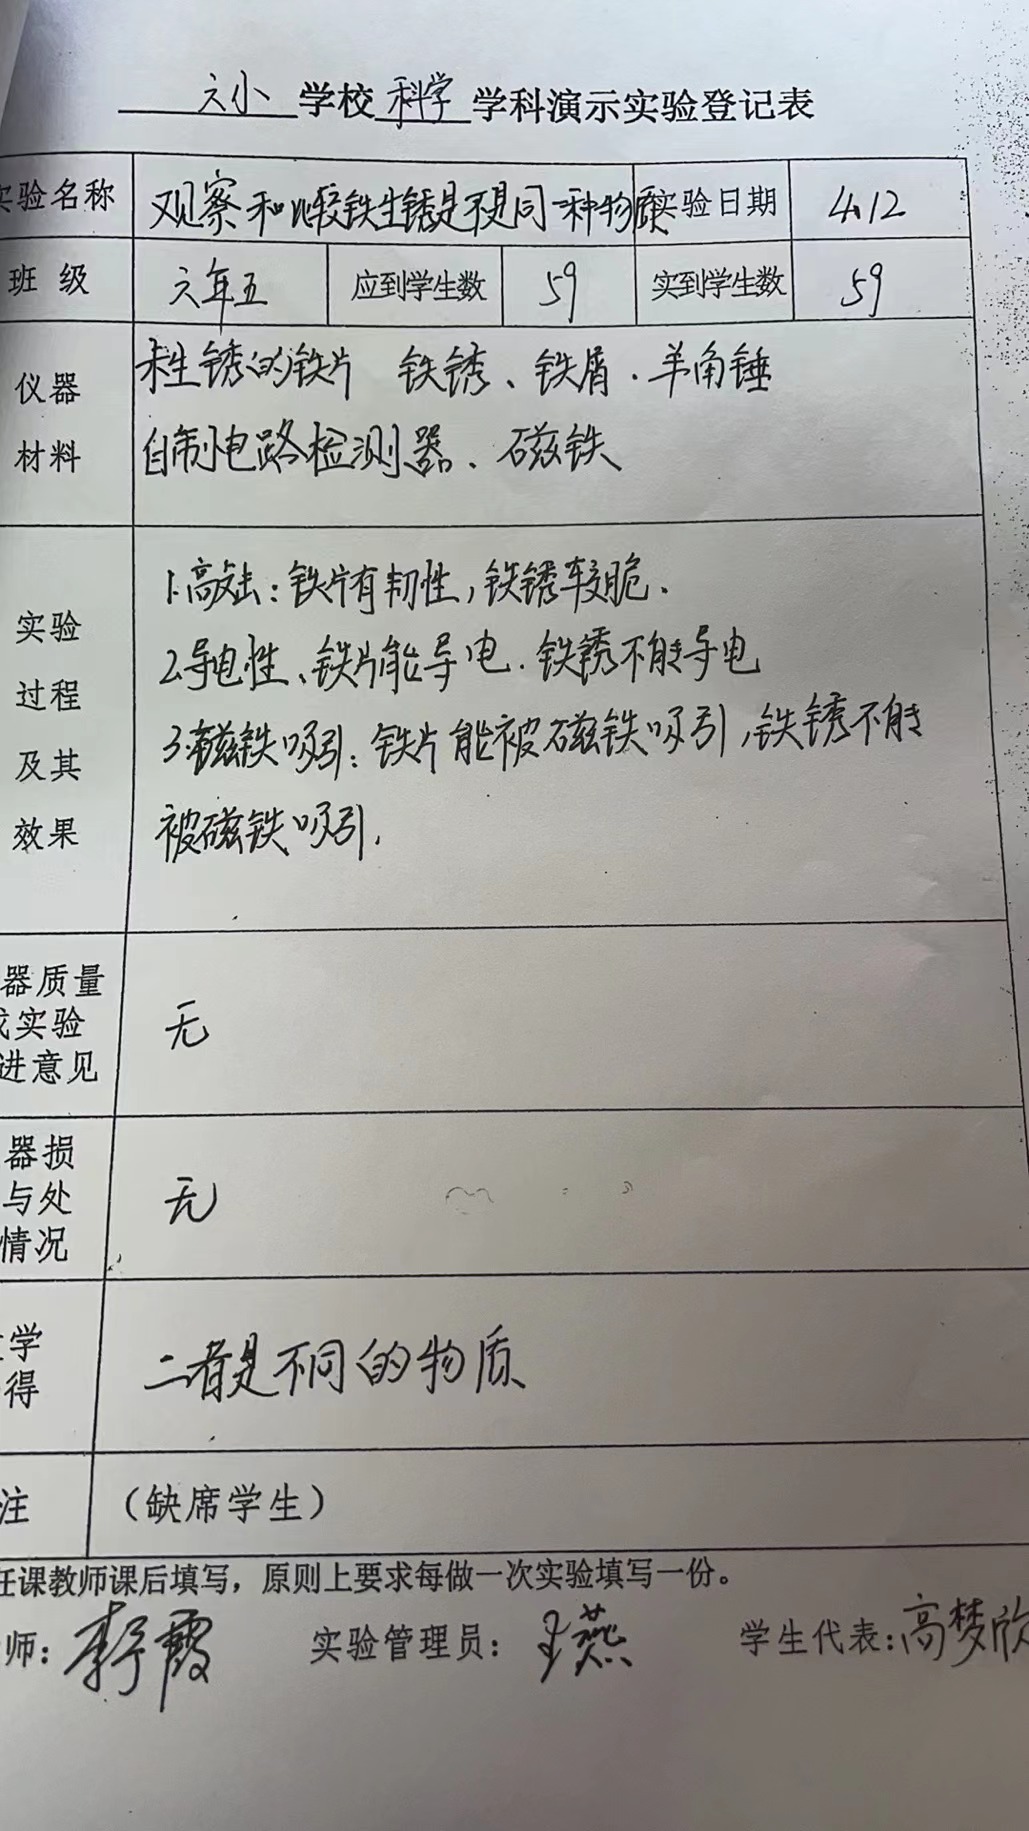 六小 学校 科学 学科演示实验登记表
实验名称 观察和比较铁生锈是不是同一种物质 实验日期 4.12
班 级 六年五 应到学生数 59 实到学生数 59
仪器
材料
未生锈的铁片 铁锈、铁屑.羊角锤
自制电路检测器、磁铁
实验
过程
及其
效果
1.敲击：铁片有韧性，铁锈较脆.
2.导电性、铁片能导电.铁锈不能导电
3.磁铁吸引：铁片能被磁铁吸引，铁锈不能
被磁铁吸引.
器质量
或实验
进意见
无
器损
与处
情况
无
学
得
二者是不同的物质
注 （缺席学生）
任课教师课后填写，原则上要求每做一次实验填写一份。
师：李霞 实验管理员：王燕 学生代表：高梦欣